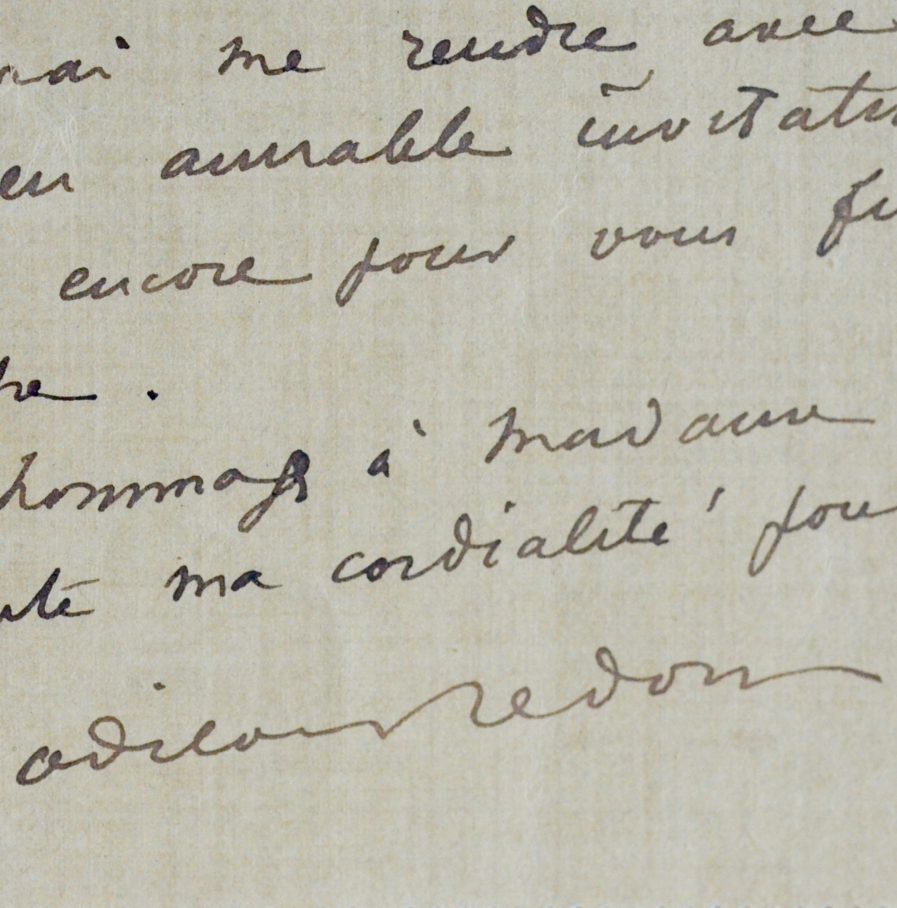 rai me rendre avec
en aimable invitati
encore pour vous
tre.
hommage à Madame
ute ma cordialité pou
odilon redon